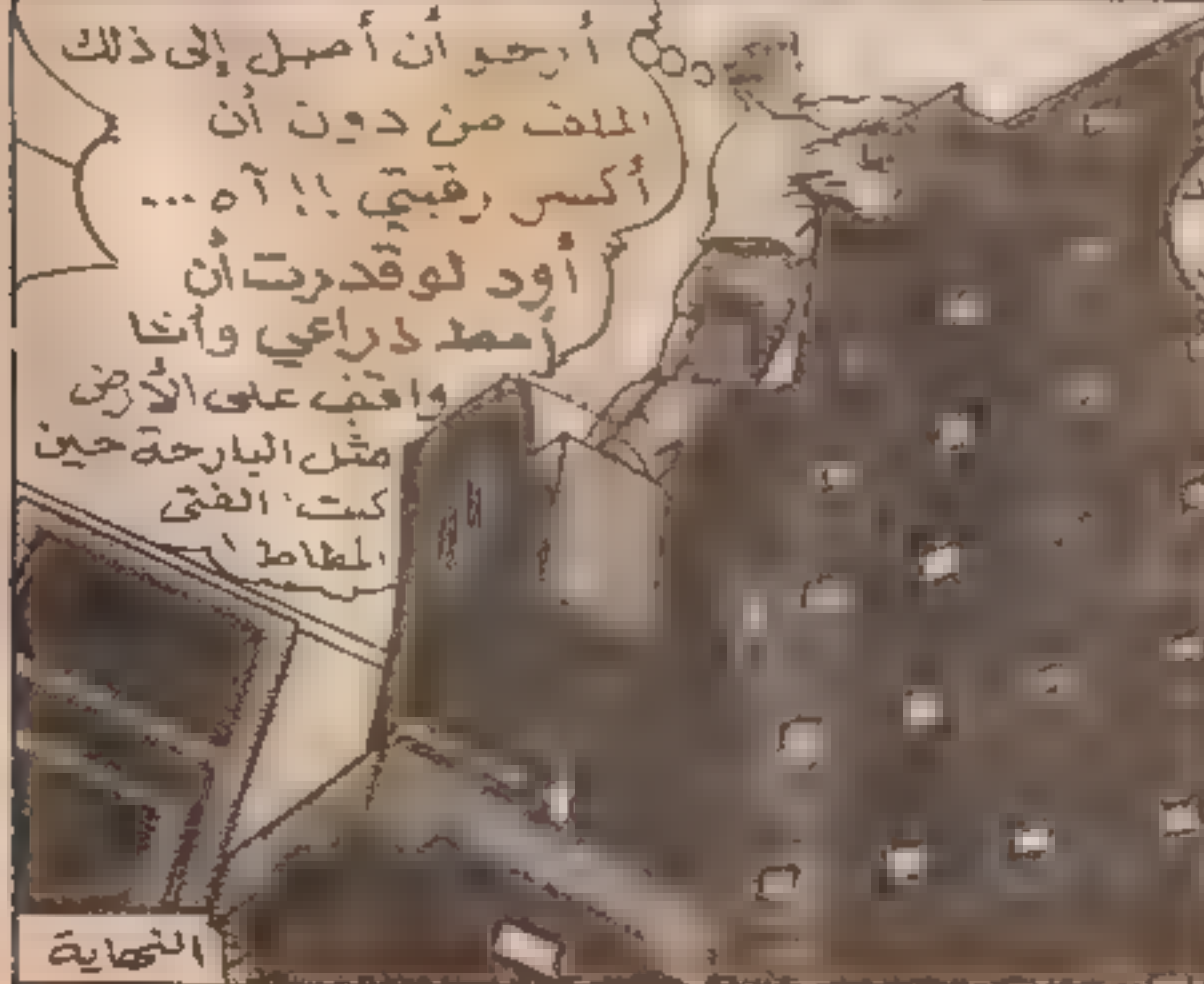 أرجو أن أصل إلى ذلك
الملف من دون أن
أكسر رقبتي !! آه...
أود لو قدرت أن
أمط ذراعي وأنا
واقف على الأرض
مثل البارحة حين
كنت "الفتى
المطاط"
النهاية